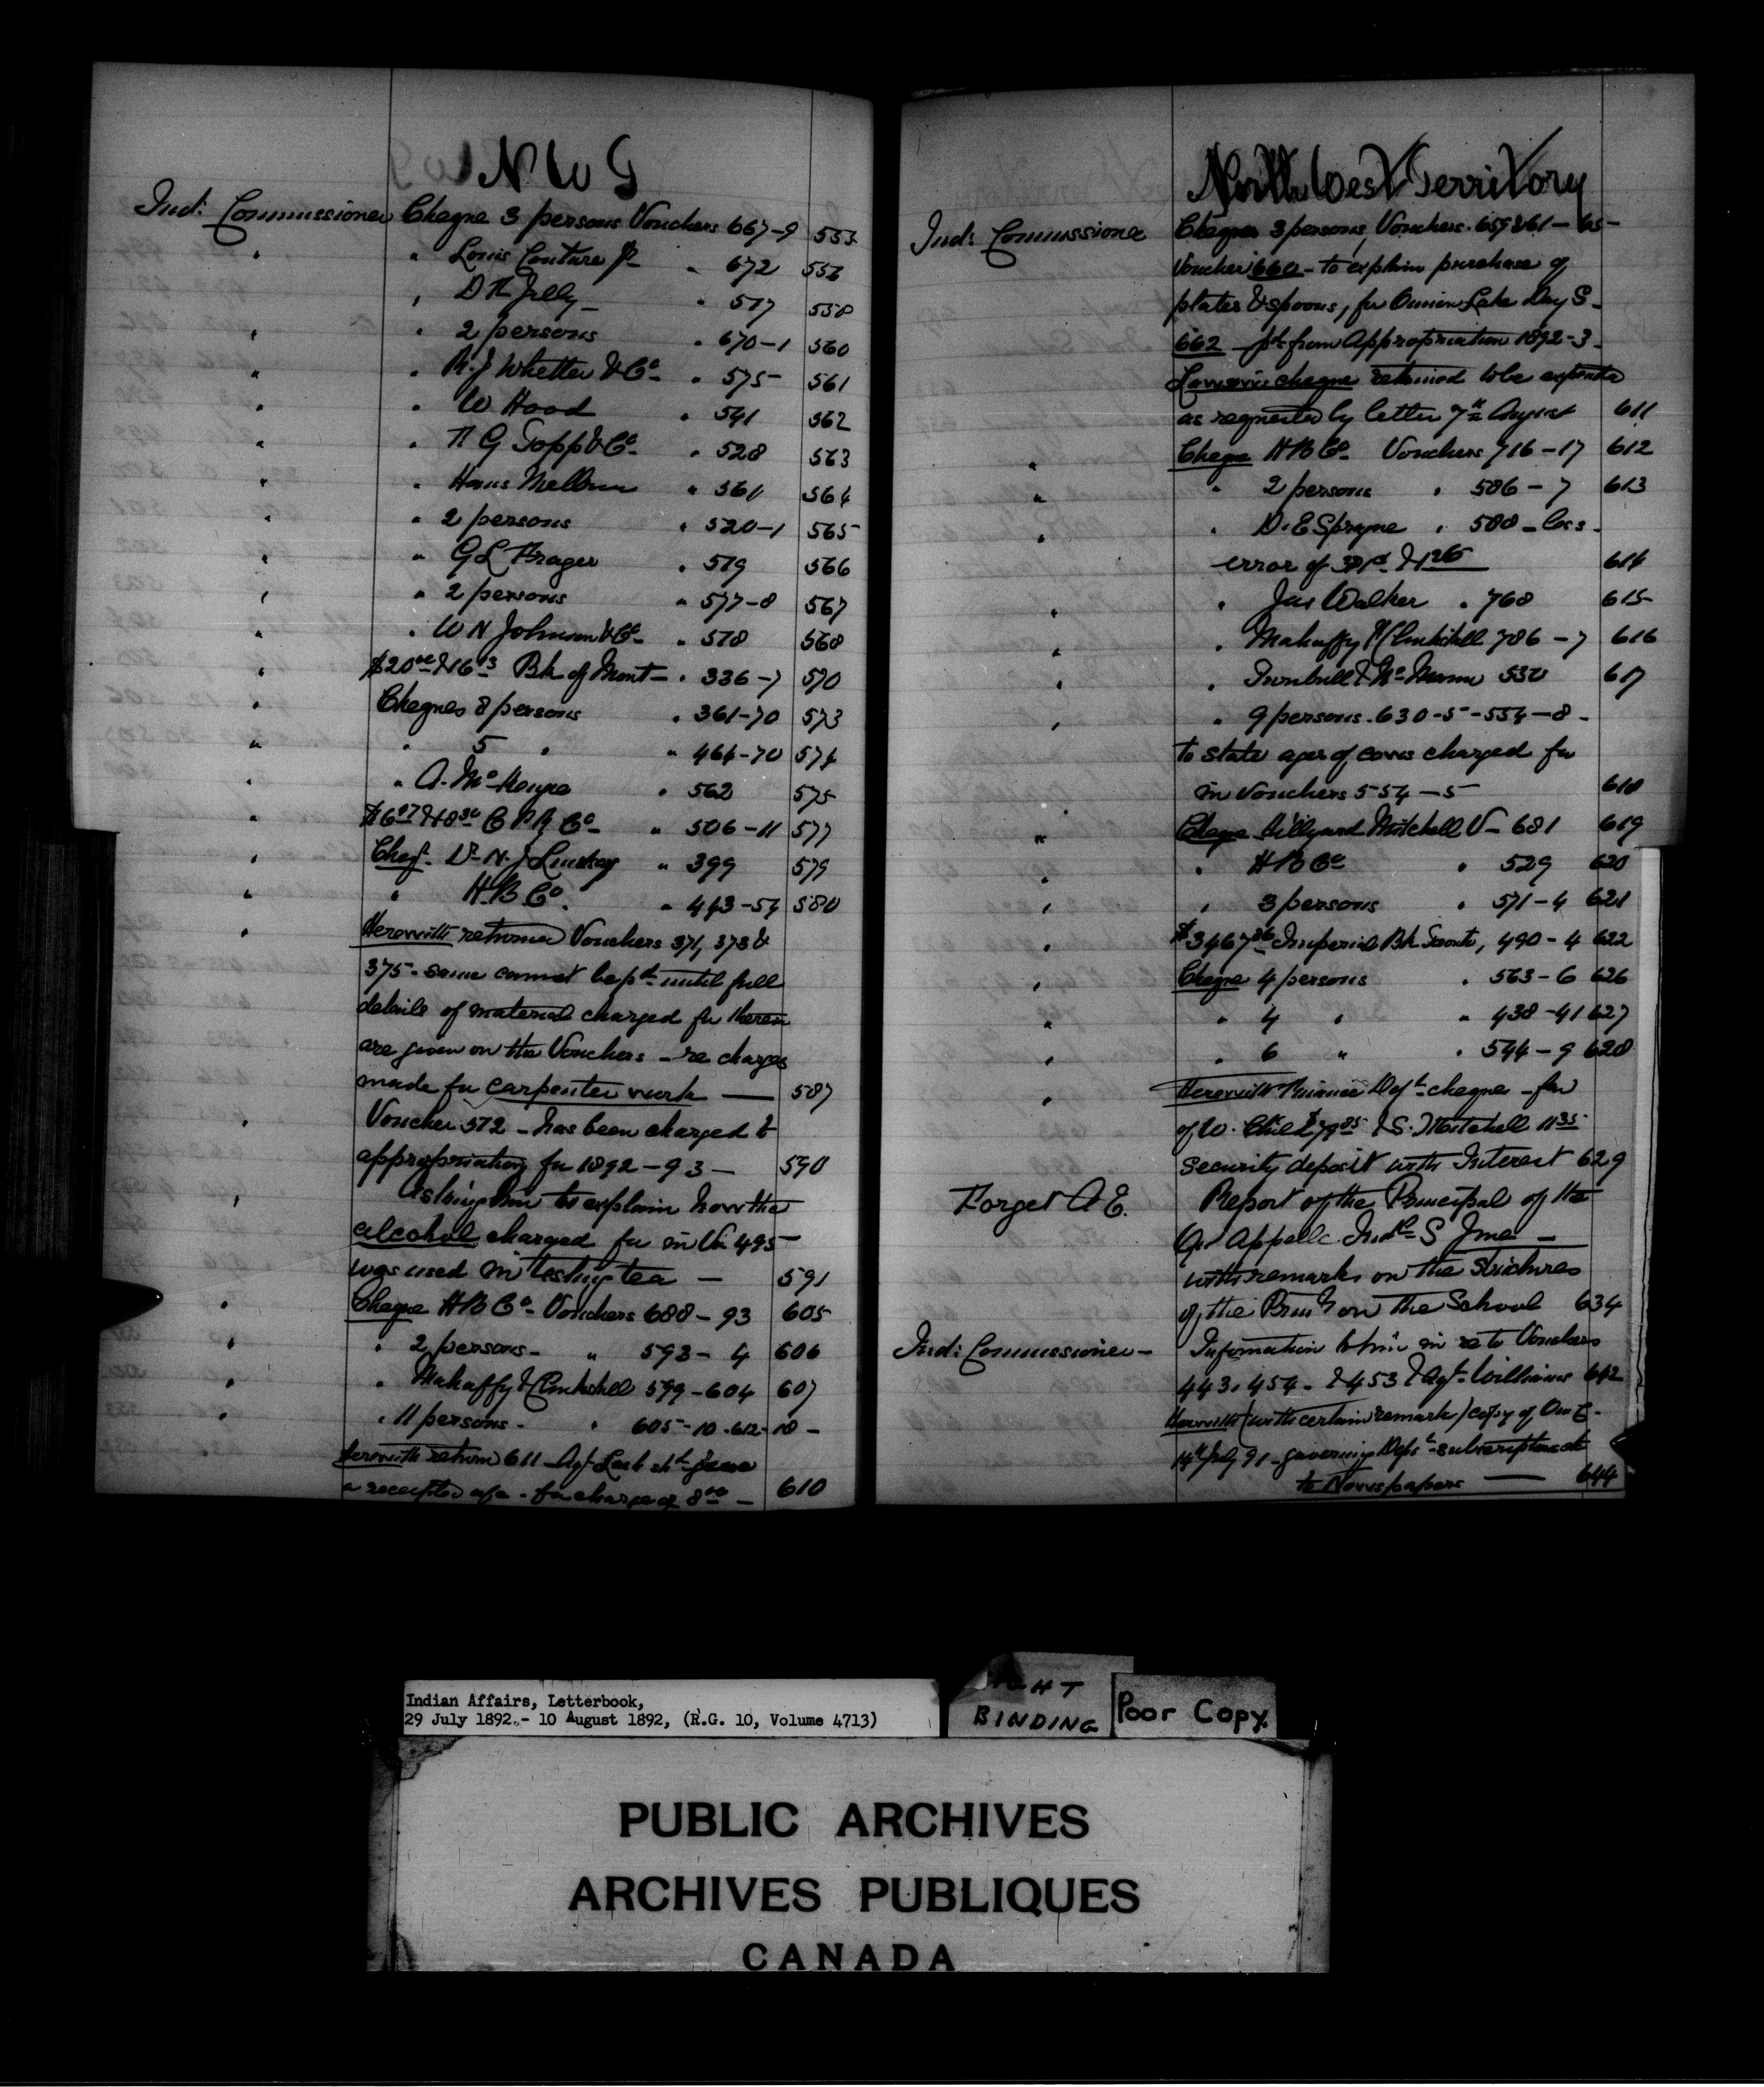 N W T
Ind: Commissioner Cheque 3 persons Vouchers 667-9 553
" " Louis Couture Jr " 672 556
" " 517 558
" " 2 persons " 670-1 560
" " R. J. Whetter & Co " 575 561
" " W Hood " 541 562
" " 528 563
" " Hans " 561 564
" " 2 persons " 520-1 565
" " G L " 579 566
" " 2 persons " 577-8 567
" " W N Johnson & Co " 578 568
" $20 00 & 16 13 Bk of Mont " 336-7 570
" Cheques 8 persons " 361-70 573
" " 5 " " 464-70 574
" " A. Mc " 562 575
" C P R Co " 506-11 577
" Cheq. Dr N. J. Lindsay " 399 579
" " H B Co. " 443-54 580
" Herewith returned Vouchers 371, 373 &
375 - same cannot be pd until full
details of material charged for therein
are given on the Vouchers - re charges
made for carpenter work — 587
" Voucher 572 - has been charged to
appropriation for 1892-93 — 590
" Asking him to explain how the
alcohol charged for in Vr 495
was used in testing tea — 591
" Cheque H B Co - Vouchers 688-93 605
" " 2 persons - " 593-4 606
" " Mahaffy & Clinkskill 599-604 607
" " 11 persons - " 605-10-612-18 -
Herewith return 611 - Agt
a receipted a/c - for charge of 8 00 — 610
North West Territory
Ind: Commissioner Cheques 3 persons, Vouchers. 659 & 61-65-
Voucher 660 - to explain purchase of
plates & spoons, for Onion Lake Day S -
662 pd from Appropriation 1892-3 -
cheque retained to be
as requested by letter 7th August 611
" Cheque H B Co Vouchers 716-17 612
" " 2 persons " 586-7 613
" " D. E Sprague " 588 - less -
error of 614
" " Jas Walker " 768 615
" " Mahaffy & Clinkskill 786-7 616
" " Turnbull & Mc 617
" " 9 persons. 630-5-554-8 -
to state ages of cows charged for
in Vouchers 554-5 618
" Cheque Hillyard Mitchell V- 681 619
" " H B Co " 529 620
" " 3 persons " 571-4 621
" $3467 86 Imperial Bk Toronto, 490-4 622
" Cheque 4 persons " 563-6 626
" " 4 " " 438-41 627
" " 6 " " 544-9 628
" Herewith Finance Dept cheques - fav
of W. Child & S. Mitchell 11 35
security deposit with Interest 629
Forget A E. Report of the Principal of the
Qu Appelle Indl S June -
with remarks on the strictures
of the on the School 634
Ind: Commissioner - Information to him in re to Vouchers
443. 454. & 453 & Agt. Williams 642
Herewith (with certain remark) copy of
14th July 91 - governing Dept subscriptions
to Newspapers — 644
Indian Affairs, Letterbook,
29 July 1892.- 10 August 1892, (R.G. 10, Volume 4713)
BINDING
Poor Copy.
PUBLIC ARCHIVES
ARCHIVES PUBLIQUES
CANADA